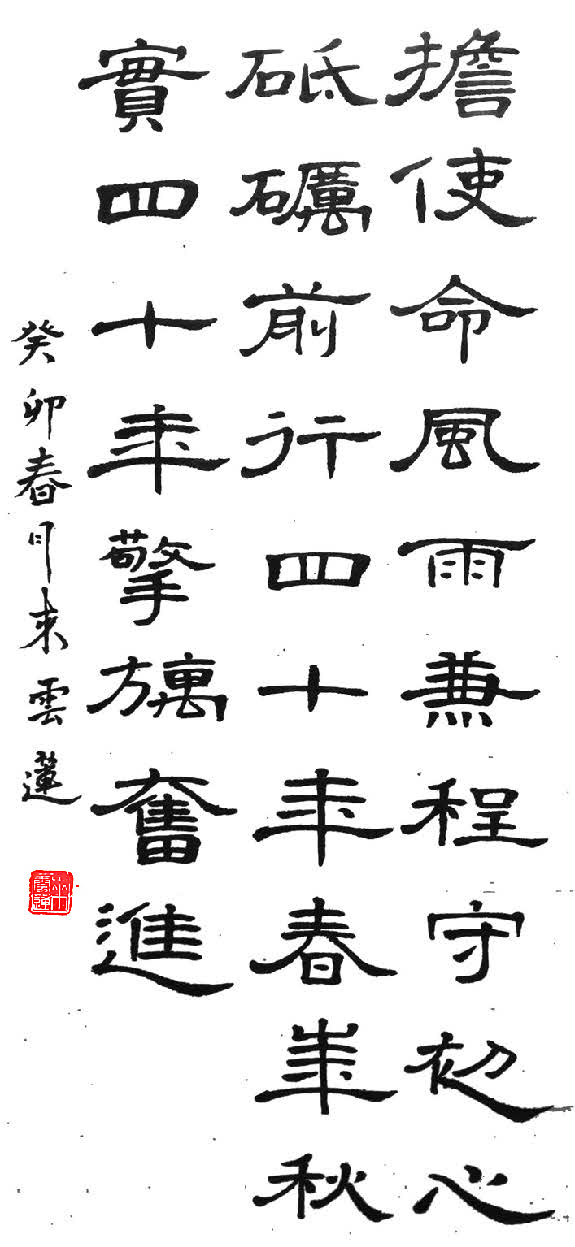 擔使命風雨兼程守初心
砥礪前行四十年春華秋
實四十年擎旗奮進
癸卯春月來雲蓮